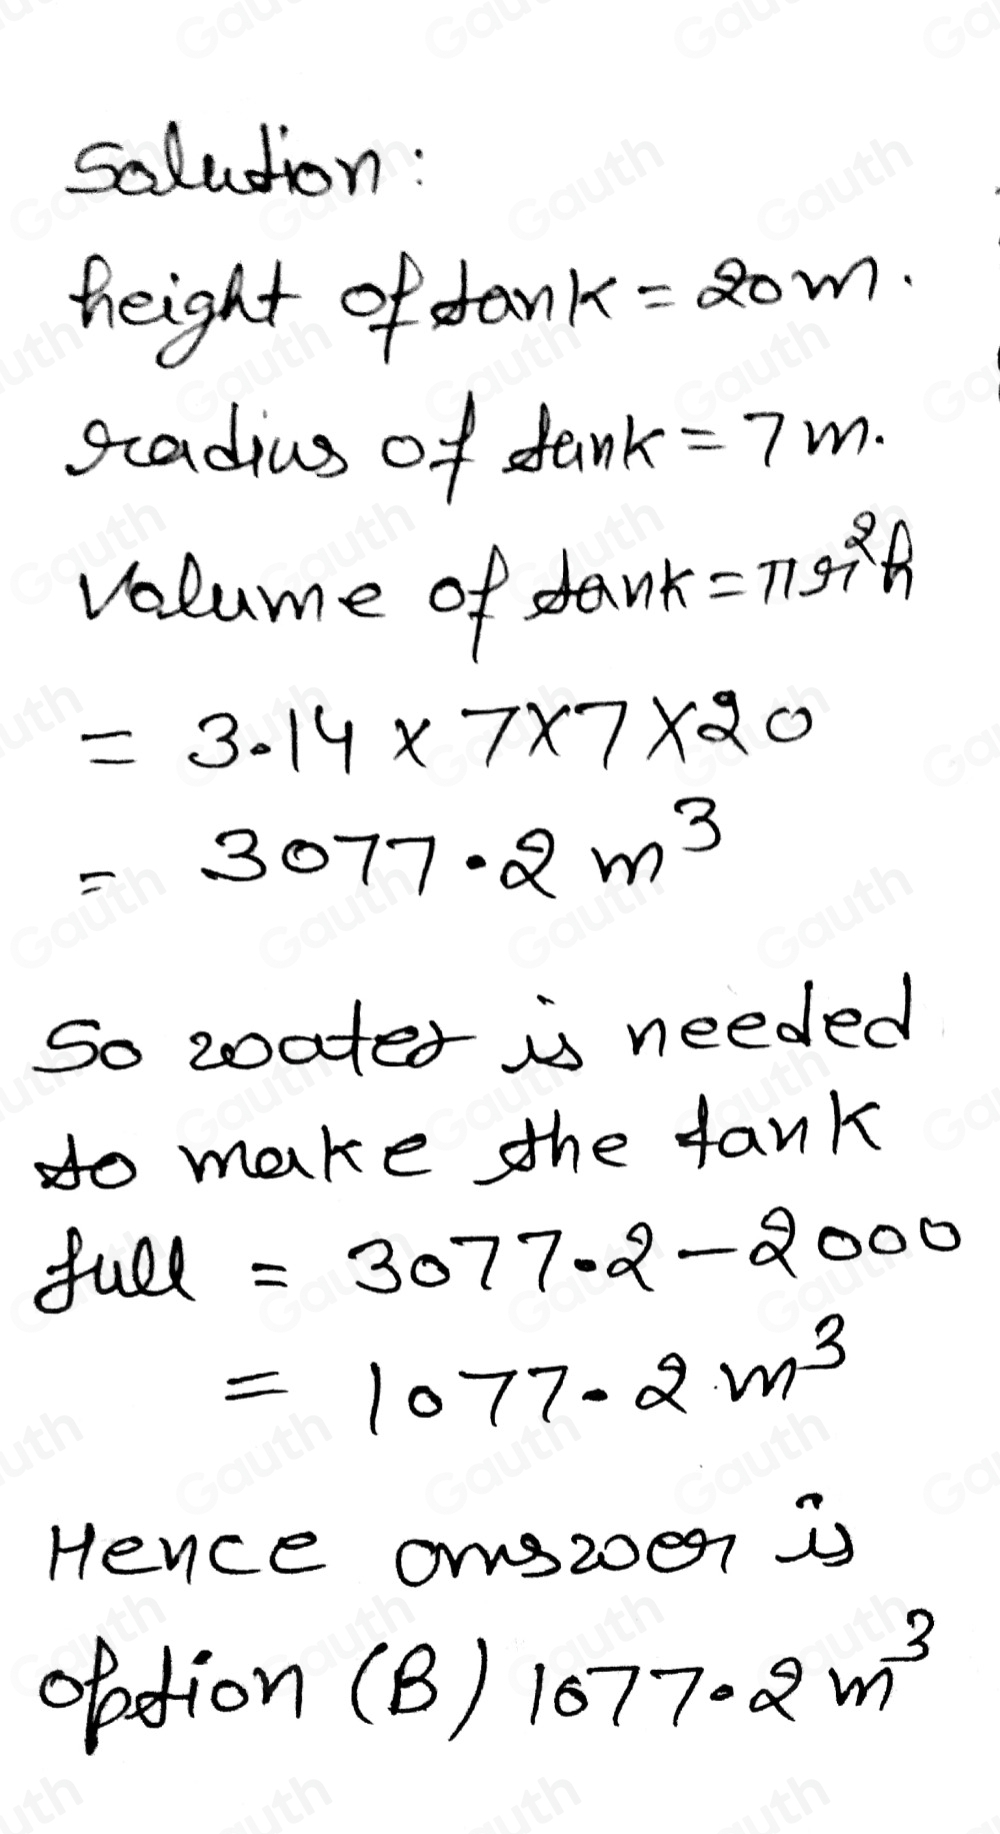 Solution:
height of tank = 20 m.
radius of tank = 7 m.
Volume of tank = πr²h
= 3.14 × 7×7×20
= 3077.2 m³
So water is needed
to make the tank
full = 3077.2 - 2000
= 1077.2 m³
Hence answer is
option (B) 1077.2 m³